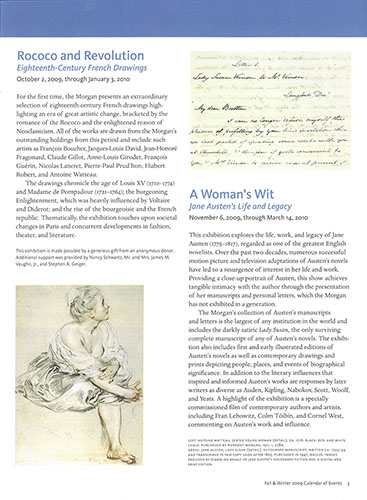 Rococo and Revolution
Eighteenth-Century French Drawings
October 2, 2009, through January 3, 2010
For the first time, the Morgan presents an extraordinary
selection of eighteenth-century French drawings high-
lighting an era of great artistic change, bracketed by the
romance of the Rococo and the enlightened reason of
Neoclassicism. All of the works are drawn from the Morgan's
outstanding holdings from this period and include such
artists as François Boucher, Jacques-Louis David, Jean-Honoré
Fragonard, Claude Gillot, Anne-Louis Girodet, François
Guérin, Nicolas Lancret, Pierre-Paul Prud'hon, Hubert
Robert, and Antoine Watteau.
The drawings chronicle the age of Louis XV (1710–1774)
and Madame de Pompadour (1721–1764); the burgeoning
Enlightenment, which was heavily influenced by Voltaire
and Diderot; and the rise of the bourgeoisie and the French
republic. Thematically, the exhibition touches upon societal
changes in Paris and concurrent developments in fashion,
theater, and literature.
This exhibition is made possible by a generous gift from an anonymous donor.
Additional support was provided by Nancy Schwartz, Mr. and Mrs. James M.
Vaughn, Jr., and Stephen A. Geiger.
Letter 1.
Lady Susan Vernon to Mr Vernon
Langford Decr
My dear Brother
I can no longer refuse myself the
pleasure of profiting by your kind invitation when
we last parted of spending some weeks with you
at Churchill
A Woman's Wit
Jane Austen's Life and Legacy
November 6, 2009, through March 14, 2010
This exhibition explores the life, work, and legacy of Jane
Austen (1775–1817), regarded as one of the greatest English
novelists. Over the past two decades, numerous successful
motion picture and television adaptations of Austen's novels
have led to a resurgence of interest in her life and work.
Providing a close-up portrait of Austen, this show achieves
tangible intimacy with the author through the presentation
of her manuscripts and personal letters, which the Morgan
has not exhibited in a generation.
The Morgan's collection of Austen's manuscripts
and letters is the largest of any institution in the world and
includes the darkly satiric Lady Susan, the only surviving
complete manuscript of any of Austen's novels. The exhibi-
tion also includes first and early illustrated editions of
Austen's novels as well as contemporary drawings and
prints depicting people, places, and events of biographical
significance. In addition to the literary influences that
inspired and informed Austen's works are responses by later
writers as diverse as Auden, Kipling, Nabokov, Scott, Woolf,
and Yeats. A highlight of the exhibition is a specially
commissioned film of contemporary authors and artists,
including Fran Lebowitz, Colm Tóibín, and Cornel West,
commenting on Austen's work and influence.
Fall & Winter 2009 Calendar of Events 3